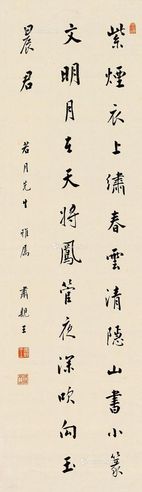 紫煙衣上繡春雲清隱山書小篆
文明月在天將鳳管夜深吹向玉
晨君
若月先生雅屬
肅親王